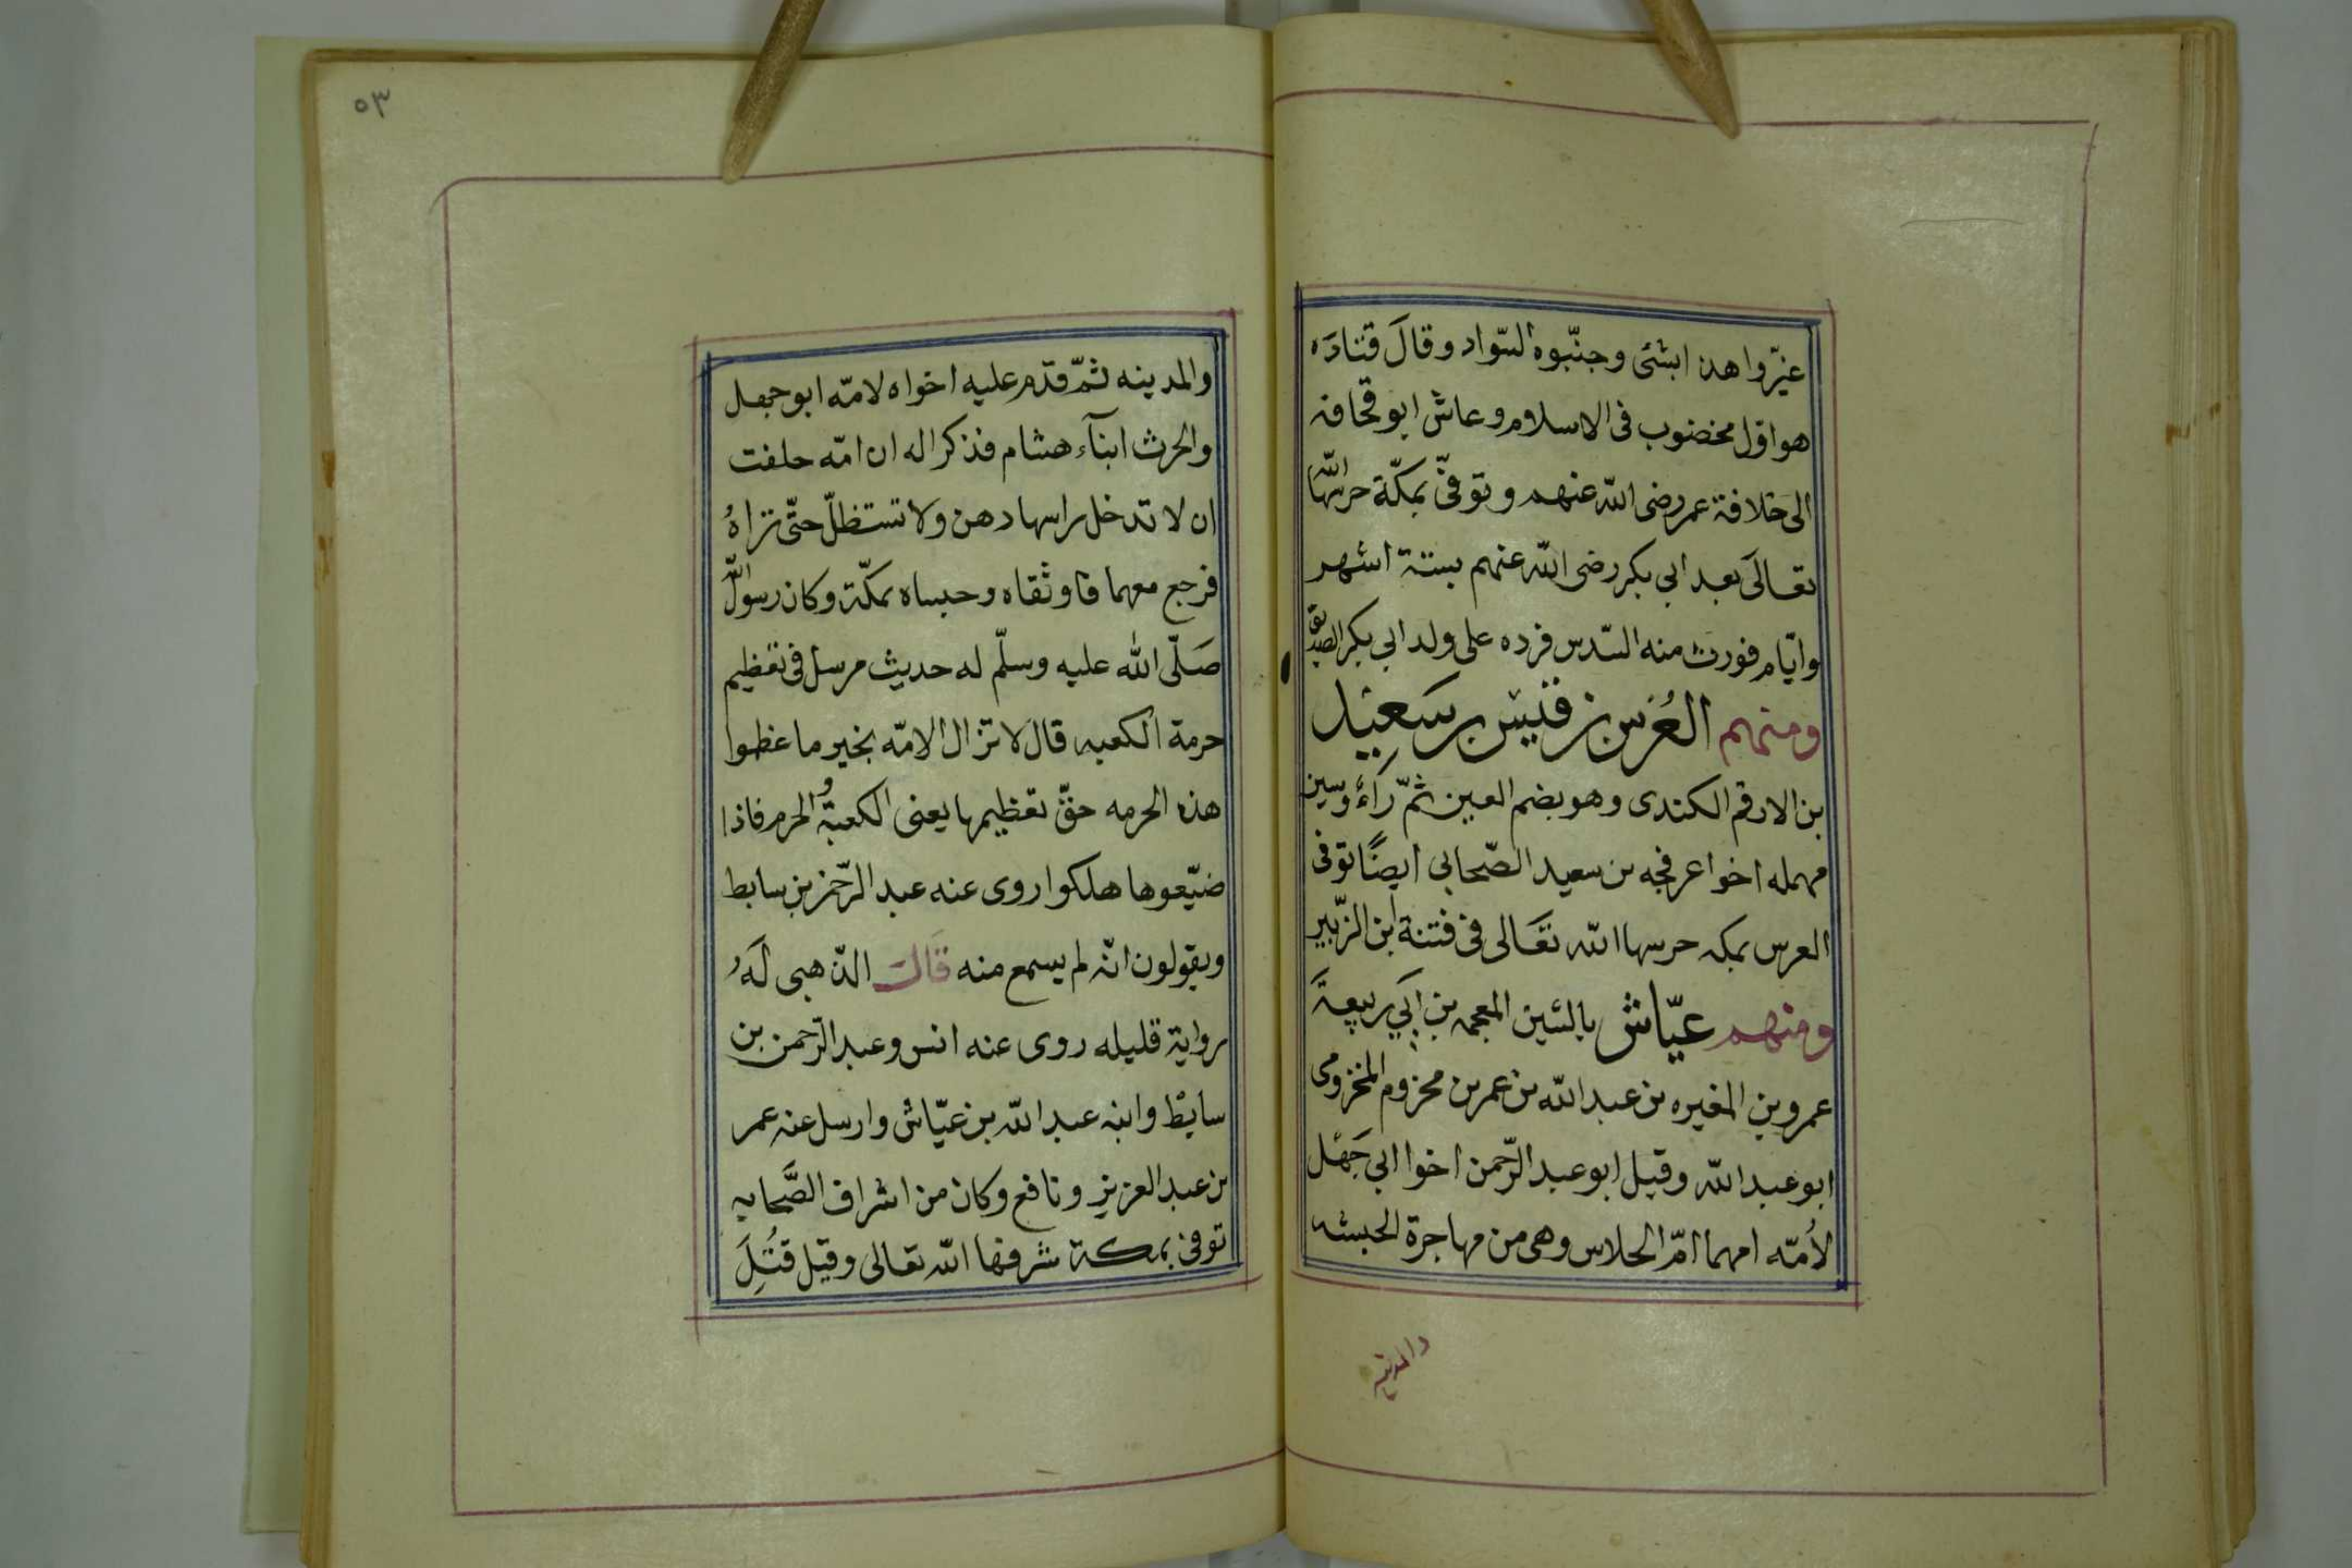 غيّروا هذا بشئ وجنّبوه السّواد وقالَ قتادَه
هو اوّل مخضوب فى الاسلام وعاش ابو قحافه
الى خلافة عمر رضى الله عنهم وتوفّى بمكّة حرسها الله
تعالَى بعد ابي بكر رضى الله عنهم بستة اشهر
وايّام فورث منه السّدس فرده على ولد ابي بكر الصدّيق
ومنهم العُرس بن قيس بن سَعيد
بن الارقم الكندى وهو بضم العين ثمّ رآء وسين
مهمله اخوا عرفجه بن سعيد الصّحابي ايضًا توفى
العرس بمكه حرسها الله تعَالى فى فتنة ابن الزّبير
ومنهم عيّاش بالشين المعجمه بن ابي ربيعة
عمرو بن المغيره بن عبد الله بن عمر بن مخزوم المخزومى
ابو عبد الله وقيل ابو عبد الرّحمن اخوا ابي جَهْل
لأمّه امهما امّ الحلاس وهى من مهاجرة الحبشه
والمدينه
٥٣
والمدينه ثمّ قدم عليه اخواه لامّه ابو جهل
والحرث ابنآء هشام فذكرا له ان امّه حلفت
ان لا تدخل راسها دهن ولا تستظلّ حتّى تراهُ
فرجع معهما فاوثقاه وحبساه بمكّة وكان رسول الله
صَلّى الله عليه وسلّم له حديث مرسل فى تعظيم
حرمة الكعبه قال لا تزال الامّه بخير ما عظموا
هذه الحرمه حقّ تعظيمها يعنى الكعبةُ و الحرم فاذا
ضيّعوها هلكوا روى عنه عبد الرّحمن بن سابط
ويقولون انّه لم يسمع منه قَالَ الذّهبى لَهُ
رواية قليله روى عنه انس وعبد الرّحمن بن
سابط وابنه عبد الله بن عيّاش وارسل عنه عمر
بن عبد العزيز ونافع وكان من اشراف الصَّحابه
توفى بمكة شرفها الله تعالى وقيل قُتِلَ